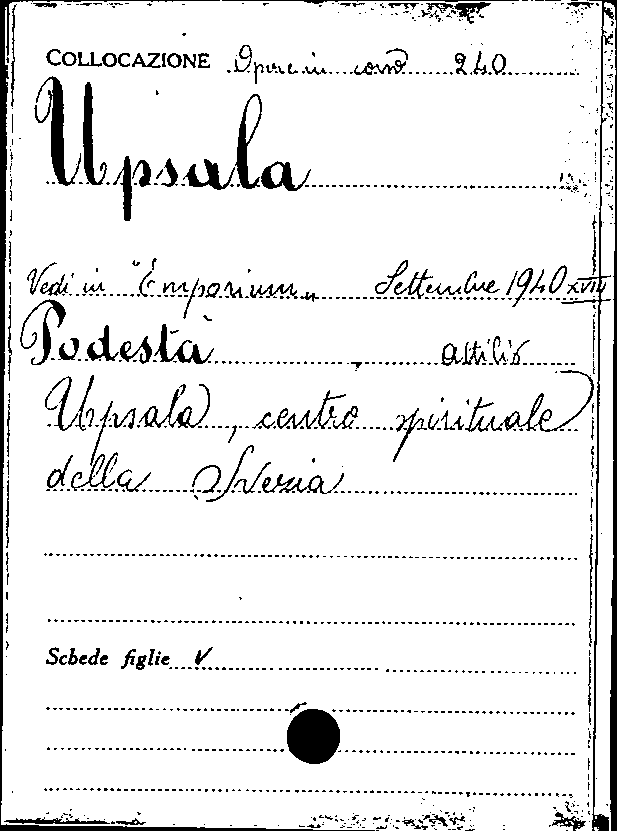 COLLOCAZIONE Opere in corso 240
Upsala
Vedi in "Emporium„ Settembre 1940 XVIII
Podestà, Attilio
Upsala, centro spirituale
della Svezia
Schede figlie V